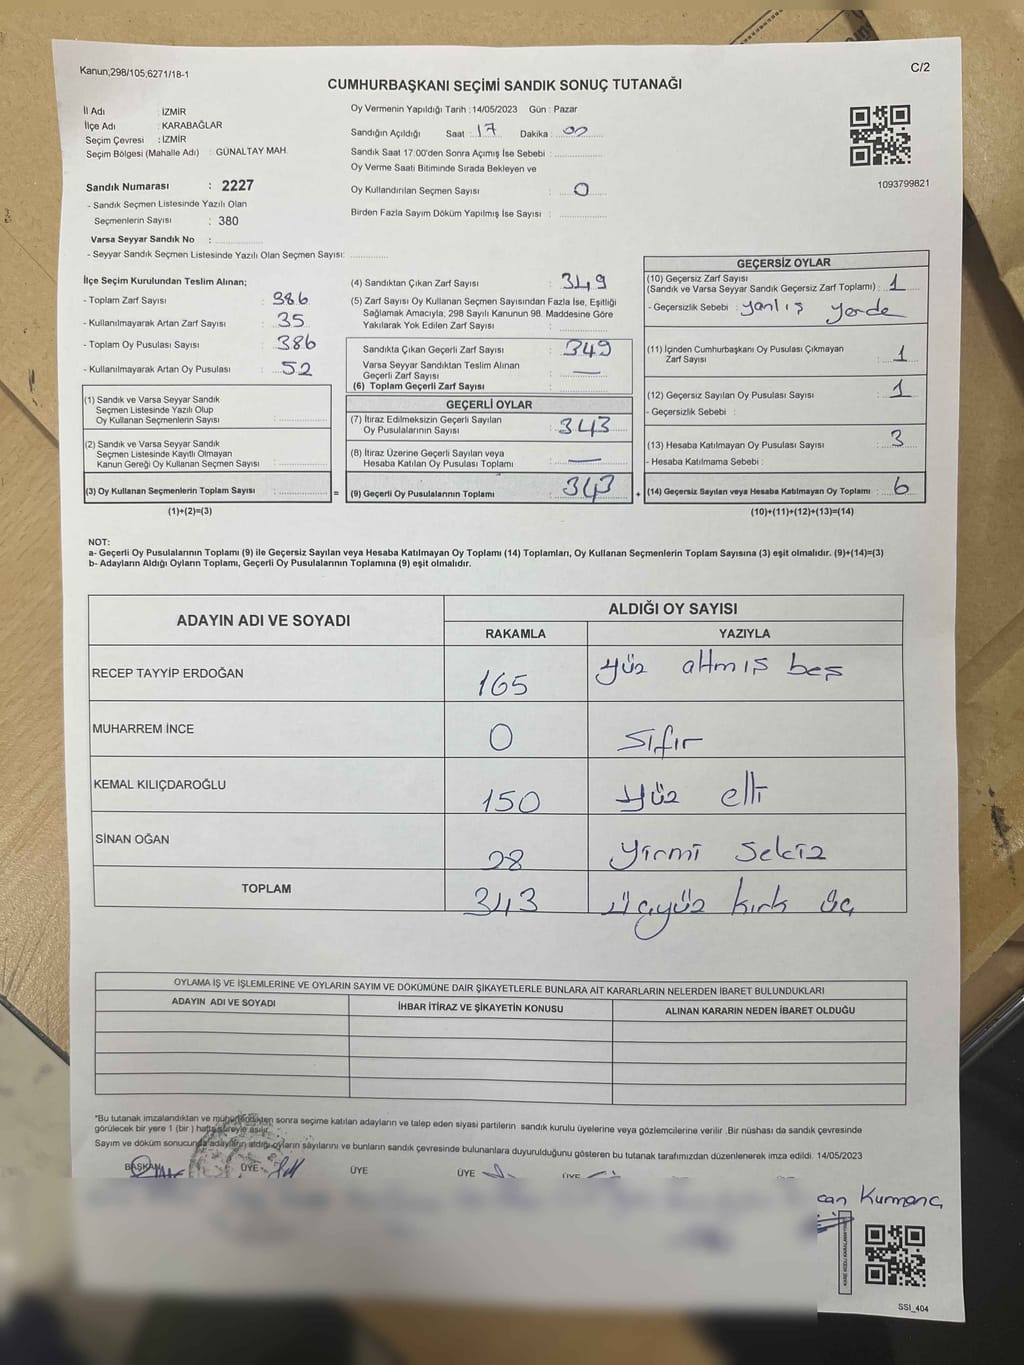 Kanun;298/105;6271/18-1
C/2
CUMHURBAŞKANI SEÇİMİ SANDIK SONUÇ TUTANAĞI
İl Adı : İZMİR
İlçe Adı : KARABAĞLAR
Seçim Çevresi : İZMİR
Seçim Bölgesi (Mahalle Adı) : GÜNALTAY MAH.
Sandık Numarası : 2227
- Sandık Seçmen Listesinde Yazılı Olan
Seçmenlerin Sayısı : 380
Varsa Seyyar Sandık No :
- Seyyar Sandık Seçmen Listesinde Yazılı Olan Seçmen Sayısı:
Oy Vermenin Yapıldığı Tarih : 14/05/2023 Gün : Pazar
Sandığın Açıldığı Saat : 17 Dakika : 00
Sandık Saat 17:00'den Sonra Açımış İse Sebebi :
Oy Verme Saati Bitiminde Sırada Bekleyen ve
Oy Kullandırılan Seçmen Sayısı : 0
Birden Fazla Sayım Döküm Yapılmış İse Sayısı :
1093799821
İlçe Seçim Kurulundan Teslim Alınan;
- Toplam Zarf Sayısı : 386
- Kullanılmayarak Artan Zarf Sayısı : 35
- Toplam Oy Pusulası Sayısı : 386
- Kullanılmayarak Artan Oy Pusulası : 52
(1) Sandık ve Varsa Seyyar Sandık
Seçmen Listesinde Yazılı Olup
Oy Kullanan Seçmenlerin Sayısı :
(2) Sandık ve Varsa Seyyar Sandık
Seçmen Listesinde Kayıtlı Olmayan
Kanun Gereği Oy Kullanan Seçmen Sayısı :
(3) Oy Kullanan Seçmenlerin Toplam Sayısı :
(1)+(2)=(3)
(4) Sandıktan Çıkan Zarf Sayısı : 349
(5) Zarf Sayısı Oy Kullanan Seçmen Sayısından Fazla İse, Eşitliği
Sağlamak Amacıyla; 298 Sayılı Kanunun 98. Maddesine Göre
Yakılarak Yok Edilen Zarf Sayısı :
Sandıkta Çıkan Geçerli Zarf Sayısı : 349
Varsa Seyyar Sandıktan Teslim Alınan
Geçerli Zarf Sayısı : —
(6) Toplam Geçerli Zarf Sayısı :
GEÇERLİ OYLAR
(7) İtiraz Edilmeksizin Geçerli Sayılan
Oy Pusulalarının Sayısı : 343
(8) İtiraz Üzerine Geçerli Sayılan veya
Hesaba Katılan Oy Pusulası Toplamı : —
= (9) Geçerli Oy Pusulalarının Toplamı : 343
GEÇERSİZ OYLAR
(10) Geçersiz Zarf Sayısı
(Sandık ve Varsa Seyyar Sandık Geçersiz Zarf Toplamı) : 1
- Geçersizlik Sebebi : yanlış yerde
(11) İçinden Cumhurbaşkanı Oy Pusulası Çıkmayan
Zarf Sayısı : 1
(12) Geçersiz Sayılan Oy Pusulası Sayısı : 1
- Geçersizlik Sebebi :
(13) Hesaba Katılmayan Oy Pusulası Sayısı : 3
- Hesaba Katılmama Sebebi :
+ (14) Geçersiz Sayılan veya Hesaba Katılmayan Oy Toplamı : 6
(10)+(11)+(12)+(13)=(14)
NOT:
a- Geçerli Oy Pusulalarının Toplamı (9) ile Geçersiz Sayılan veya Hesaba Katılmayan Oy Toplamı (14) Toplamları, Oy Kullanan Seçmenlerin Toplam Sayısına (3) eşit olmalıdır. (9)+(14)=(3)
b- Adayların Aldığı Oyların Toplamı, Geçerli Oy Pusulalarının Toplamına (9) eşit olmalıdır.
ADAYIN ADI VE SOYADI
ALDIĞI OY SAYISI
RAKAMLA YAZIYLA
RECEP TAYYİP ERDOĞAN 165 yüz altmış beş
MUHARREM İNCE 0 Sıfır
KEMAL KILIÇDAROĞLU 150 yüz elli
SİNAN OĞAN 28 yirmi sekiz
TOPLAM 343 üçyüz kırk üç
OYLAMA İŞ VE İŞLEMLERİNE VE OYLARIN SAYIM VE DÖKÜMÜNE DAİR ŞİKAYETLERLE BUNLARA AİT KARARLARIN NELERDEN İBARET BULUNDUKLARI
ADAYIN ADI VE SOYADI İHBAR İTİRAZ VE ŞİKAYETİN KONUSU ALINAN KARARIN NEDEN İBARET OLDUĞU
*Bu tutanak imzalandıktan ve mühürlendikten sonra seçime katılan adayların ve talep eden siyasi partilerin sandık kurulu üyelerine veya gözlemcilerine verilir .Bir nüshası da sandık çevresinde
görülecek bir yere 1 (bir ) hafta süreyle asılır.
Sayım ve döküm sonucunda adayların aldığı oyların sayılarını ve bunların sandık çevresinde bulunanlara duyurulduğunu gösteren bu tutanak tarafımızdan düzenlenerek imza edildi. 14/05/2023
BAŞKAN ÜYE ÜYE ÜYE ÜYE
can
SSI_404